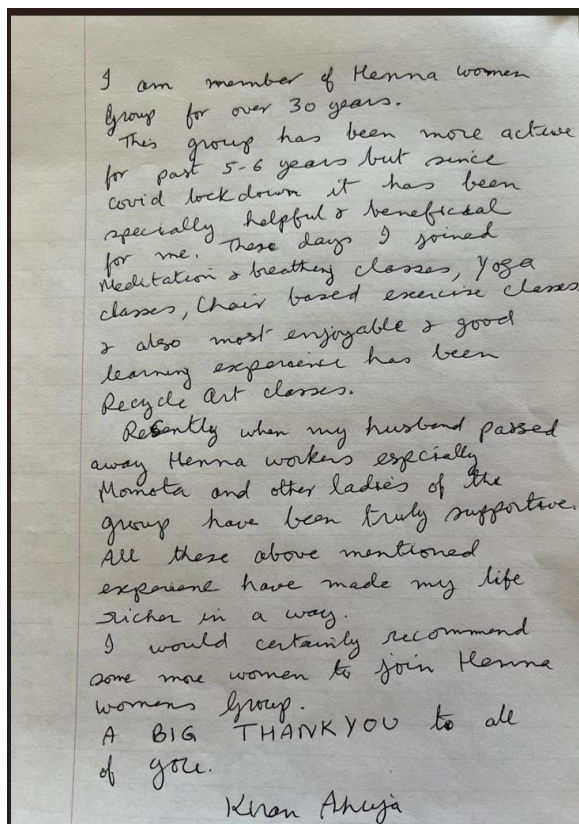 I am member of Henna women
Group for over 30 years.
This group has been more active
for past 5-6 years but since
covid lockdown it has been
specially helpful & beneficial
for me. These days I joined
Meditation & breathing classes, Yoga
classes, Chair based exercise classes
& also most enjoyable & good
learning experience has been
Recycle Art classes.
Recently when my husband passed
away Henna workers especially
Momota and other ladies of the
group have been truly supportive.
All these above mentioned
experience have made my life
richer in a way.
I would certainly recommend
some more women to join Henna
womens Group.
A BIG THANKYOU to all
of you.
Kiran Ahuja